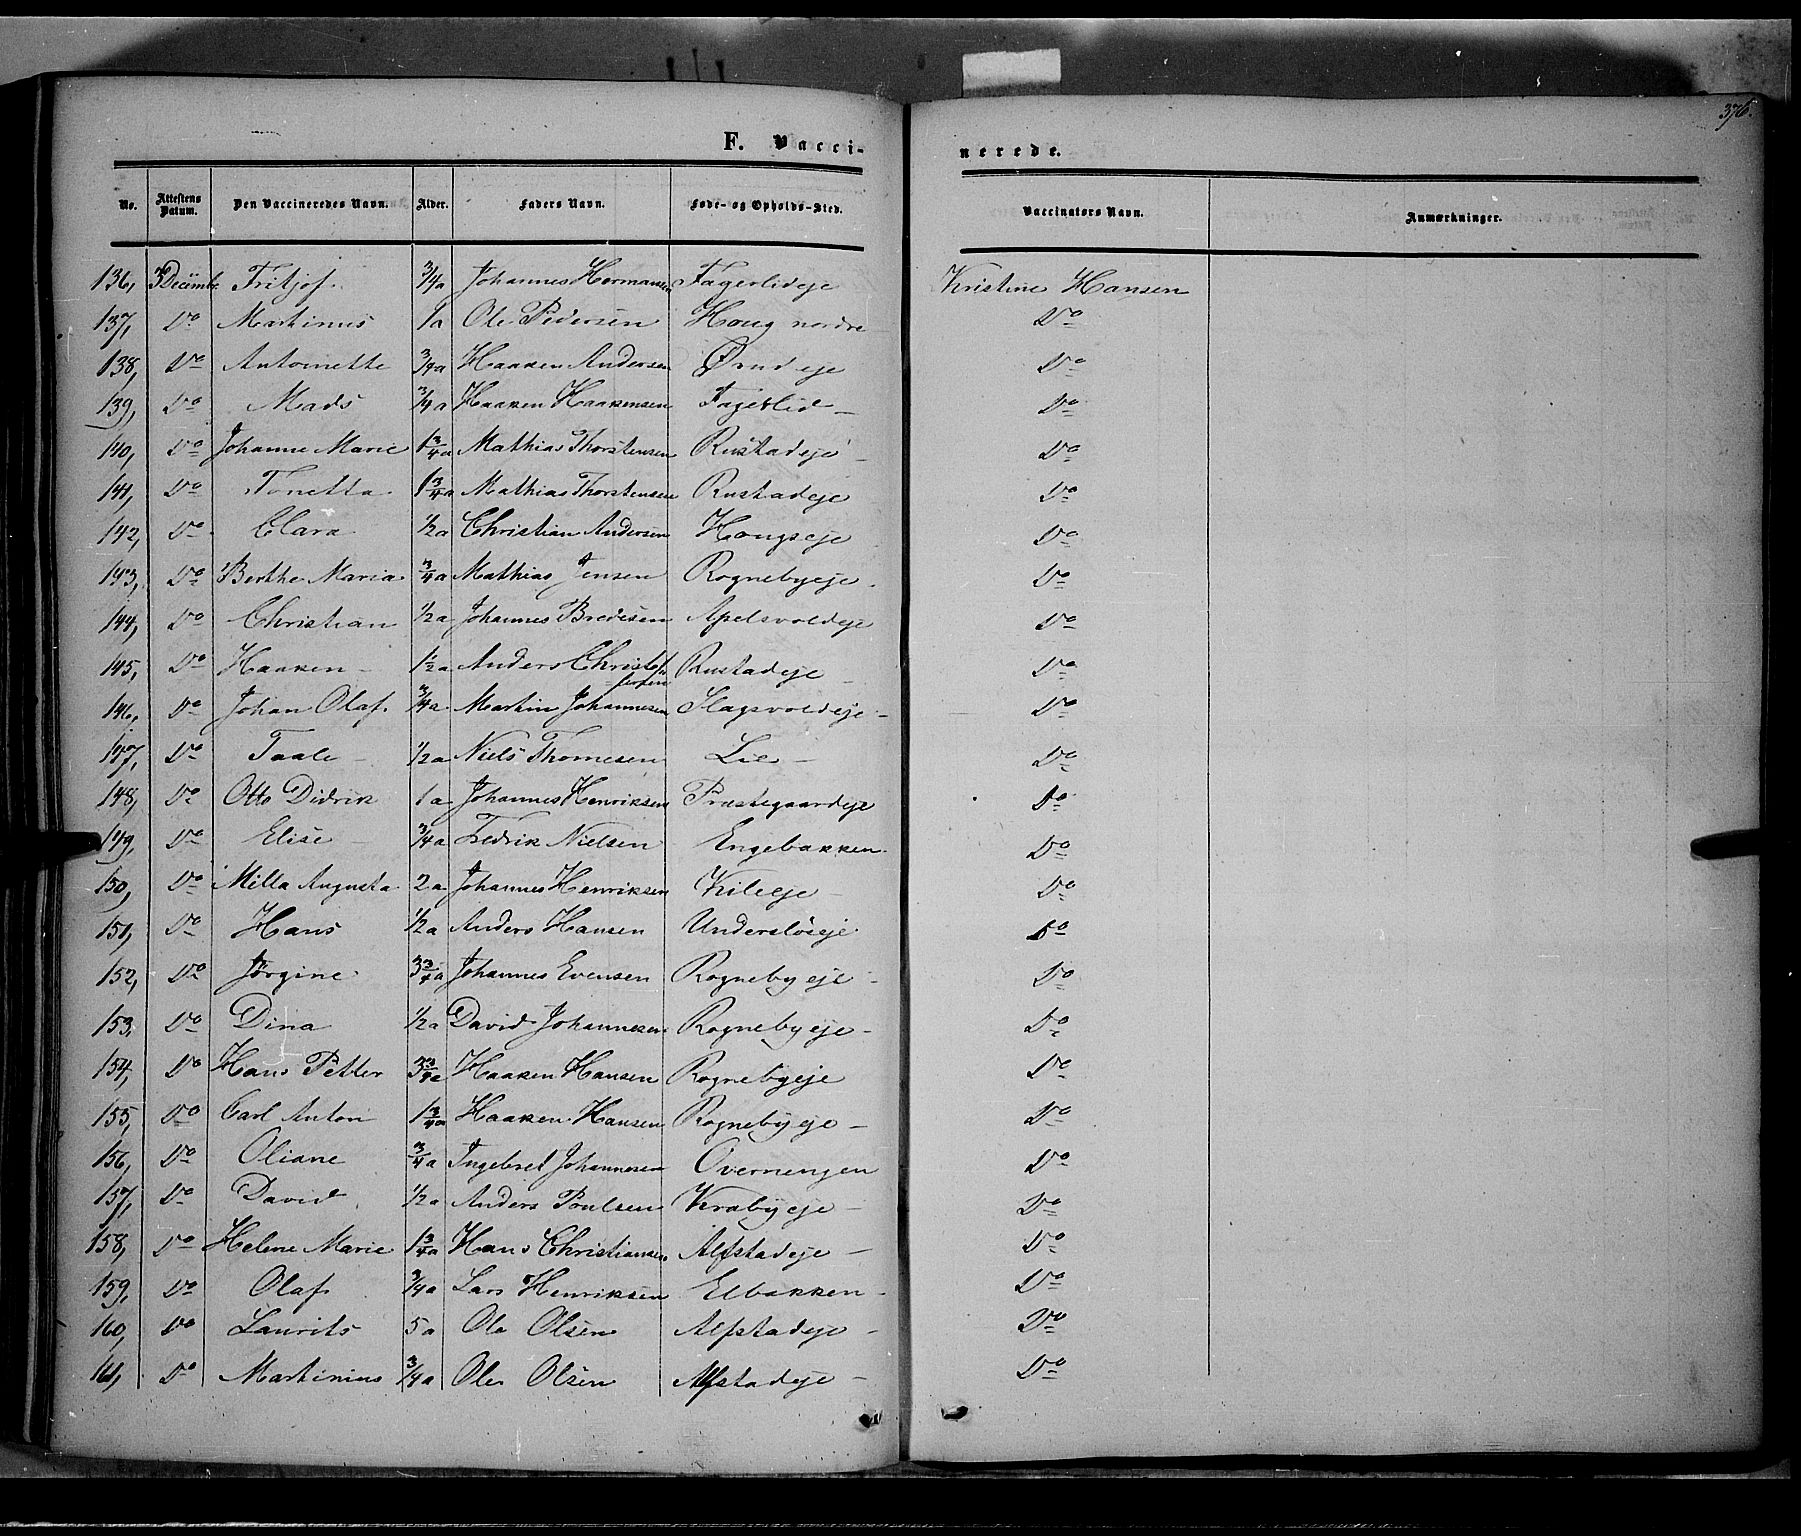 376.
F. Vacci-
nerede.
No. Attestens Datum. Den Vaccineredes Navn. Alder. Faders Navn. Føde- og Opholds-Sted. Vaccinators Navn. Anmærkninger.
136, Decembr. Fritjof. 3/4 a Johannes Hermansen Fagerlideje Kristine Hansen
137, Do Martinus 1 a Ole Pedersen Houg nordre Do
138, Do Antoinette 3/4 a Haaken Andersen eje Do
139, Do Mads 3/4 a Haaken Haakensen Fagerlid - Do
140, Do Johanne Marie 1 3/4 a Mathias Thorstensen Rustadeje - Do
141, Do Tonetta 1 3/4 a Mathias Thorstensen Rustadeje Do
142, Do Clara 1/2 a Christian Andersen Hougseje Do
143, Do Berthe Maria 3/4 a Mathias Jensen Rognebyeje - Do
144, Do Christian 1/2 a Johannes Bredesen Apelsvoldeje Do
145, Do Haaken - 1/2 a Anders Christof fersen Rustadeje - Do
146, Do Johan Olaf. 3/4 a Martin Johannesen Slagsvoldeje - Do
147, Do Taale - 1/2 a Niels Thomesen Lie - Do
148, Do Otto Didrik 1 a Johannes Henriksen Præstegaardeje Do
149, Do Elise - 3/4 a Fredrik Nielsen Engebakken Do
150, Do Milla Augusta 2 a Johannes Henriksen Kileje - Do
151, Do Hans 1/2 a Anders Hansen Underslöseje Do
152, Do Jørgine 3 3/4 a Johannes Evensen Rognebyeje - Do
153, Do Dina 1/2 a David Johannesen Rognebyeje - Do
154, Do Hans Petter 3 3/4 a Haaken Hansen Rognebyeje Do
155, Do Carl Anton 1 3/4 a Haaken Hansen Rognebyeje - Do
156, Do Oliane 3/4 a Ingebret Johannesen Overnengen Do
157, Do David 1/2 a Anders Poulsen Krabyeje - Do
158, Do Helene Marie 1 3/4 a Hans Christiansen Alfstadeje - Do
159, Do Olaf 3/4 a Lars Henriksen Elbakken - Do
160, Do Laurits 5 a Ole Olsen Alfstadeje - Do
161, Do Martinius 3/4 a Ole Olsen Alfstadeje - Do